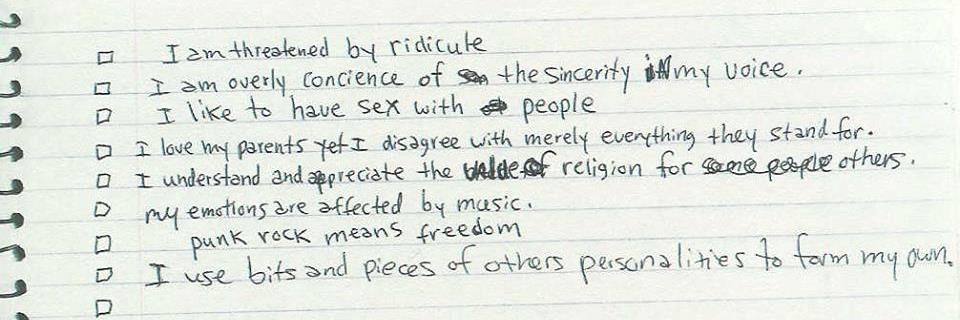 I am threatened by ridicule
I am overly concience of the sincerity in my voice.
I like to have sex with people
I love my parents yet I disagree with merely everything they stand for.
I understand and appreciate the value of religion for some people others.
my emotions are affected by music.
punk rock means freedom
I use bits and pieces of others personalities to form my own.